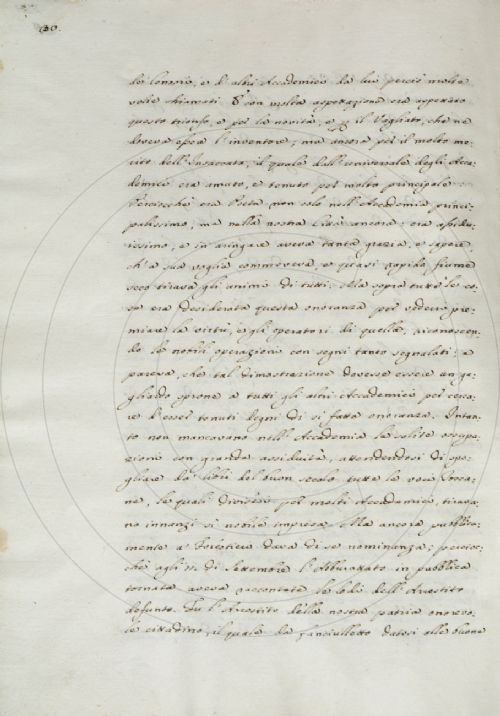 130.
del Consolo, e d'altri Accademici da lui perciò molte
volte chiamati. E con molta aspettazione era aspettato
questo trionfo, e per la novità, e per il Vagliato, che ne
doveva esser l'inventore; ma ancora per il molto me-
rito dell'Insaccato, il quale dall'universale degli Acca-
demici era amato, e tenuto per molto principale
Perciocchè era Poeta non solo nell'Accademia princi-
palissimo, ma nella nostra Città ancora: era assidu-
issimo, e in aringare aveva tanta grazia, e sapere
ch'a sua voglia commoveva, e quasi rapido fiume
seco tirava gli animi di tutti. Ma sopra tutte le co-
se era desiderata questa onoranza per vedere pre-
miare la virtù, e gli operatori di quella, riconoscen-
do le nobili operazioni con segni tanto segnalati: e
pareva, che tal dimostrazione dovesse essere un ga-
gliardo sprone a tutti gli altri Accademici per cerca-
re d'esser tenuti degni di sì fatta onoranza. Intan-
to non mancavano nell'Accademia le solite occupa-
zioni con grande assiduità, attendendosi di spo-
gliare da' libri del buon secolo tutte le voci Tosca-
ne, le quali divise per molti Accademici, tirava-
no innanzi sì nobile impresa. Ma ancora pubblica-
mente a' Forestieri dava di se nominanza; percioc-
chè agli 11. di Settembre l' in pubblica
tornata aveva raccontate le lodi dell'Arrostito
defunto. Fu l'Arrostito della nostra patria onorevo-
le cittadino, il quale da fanciulletto datosi alle buone